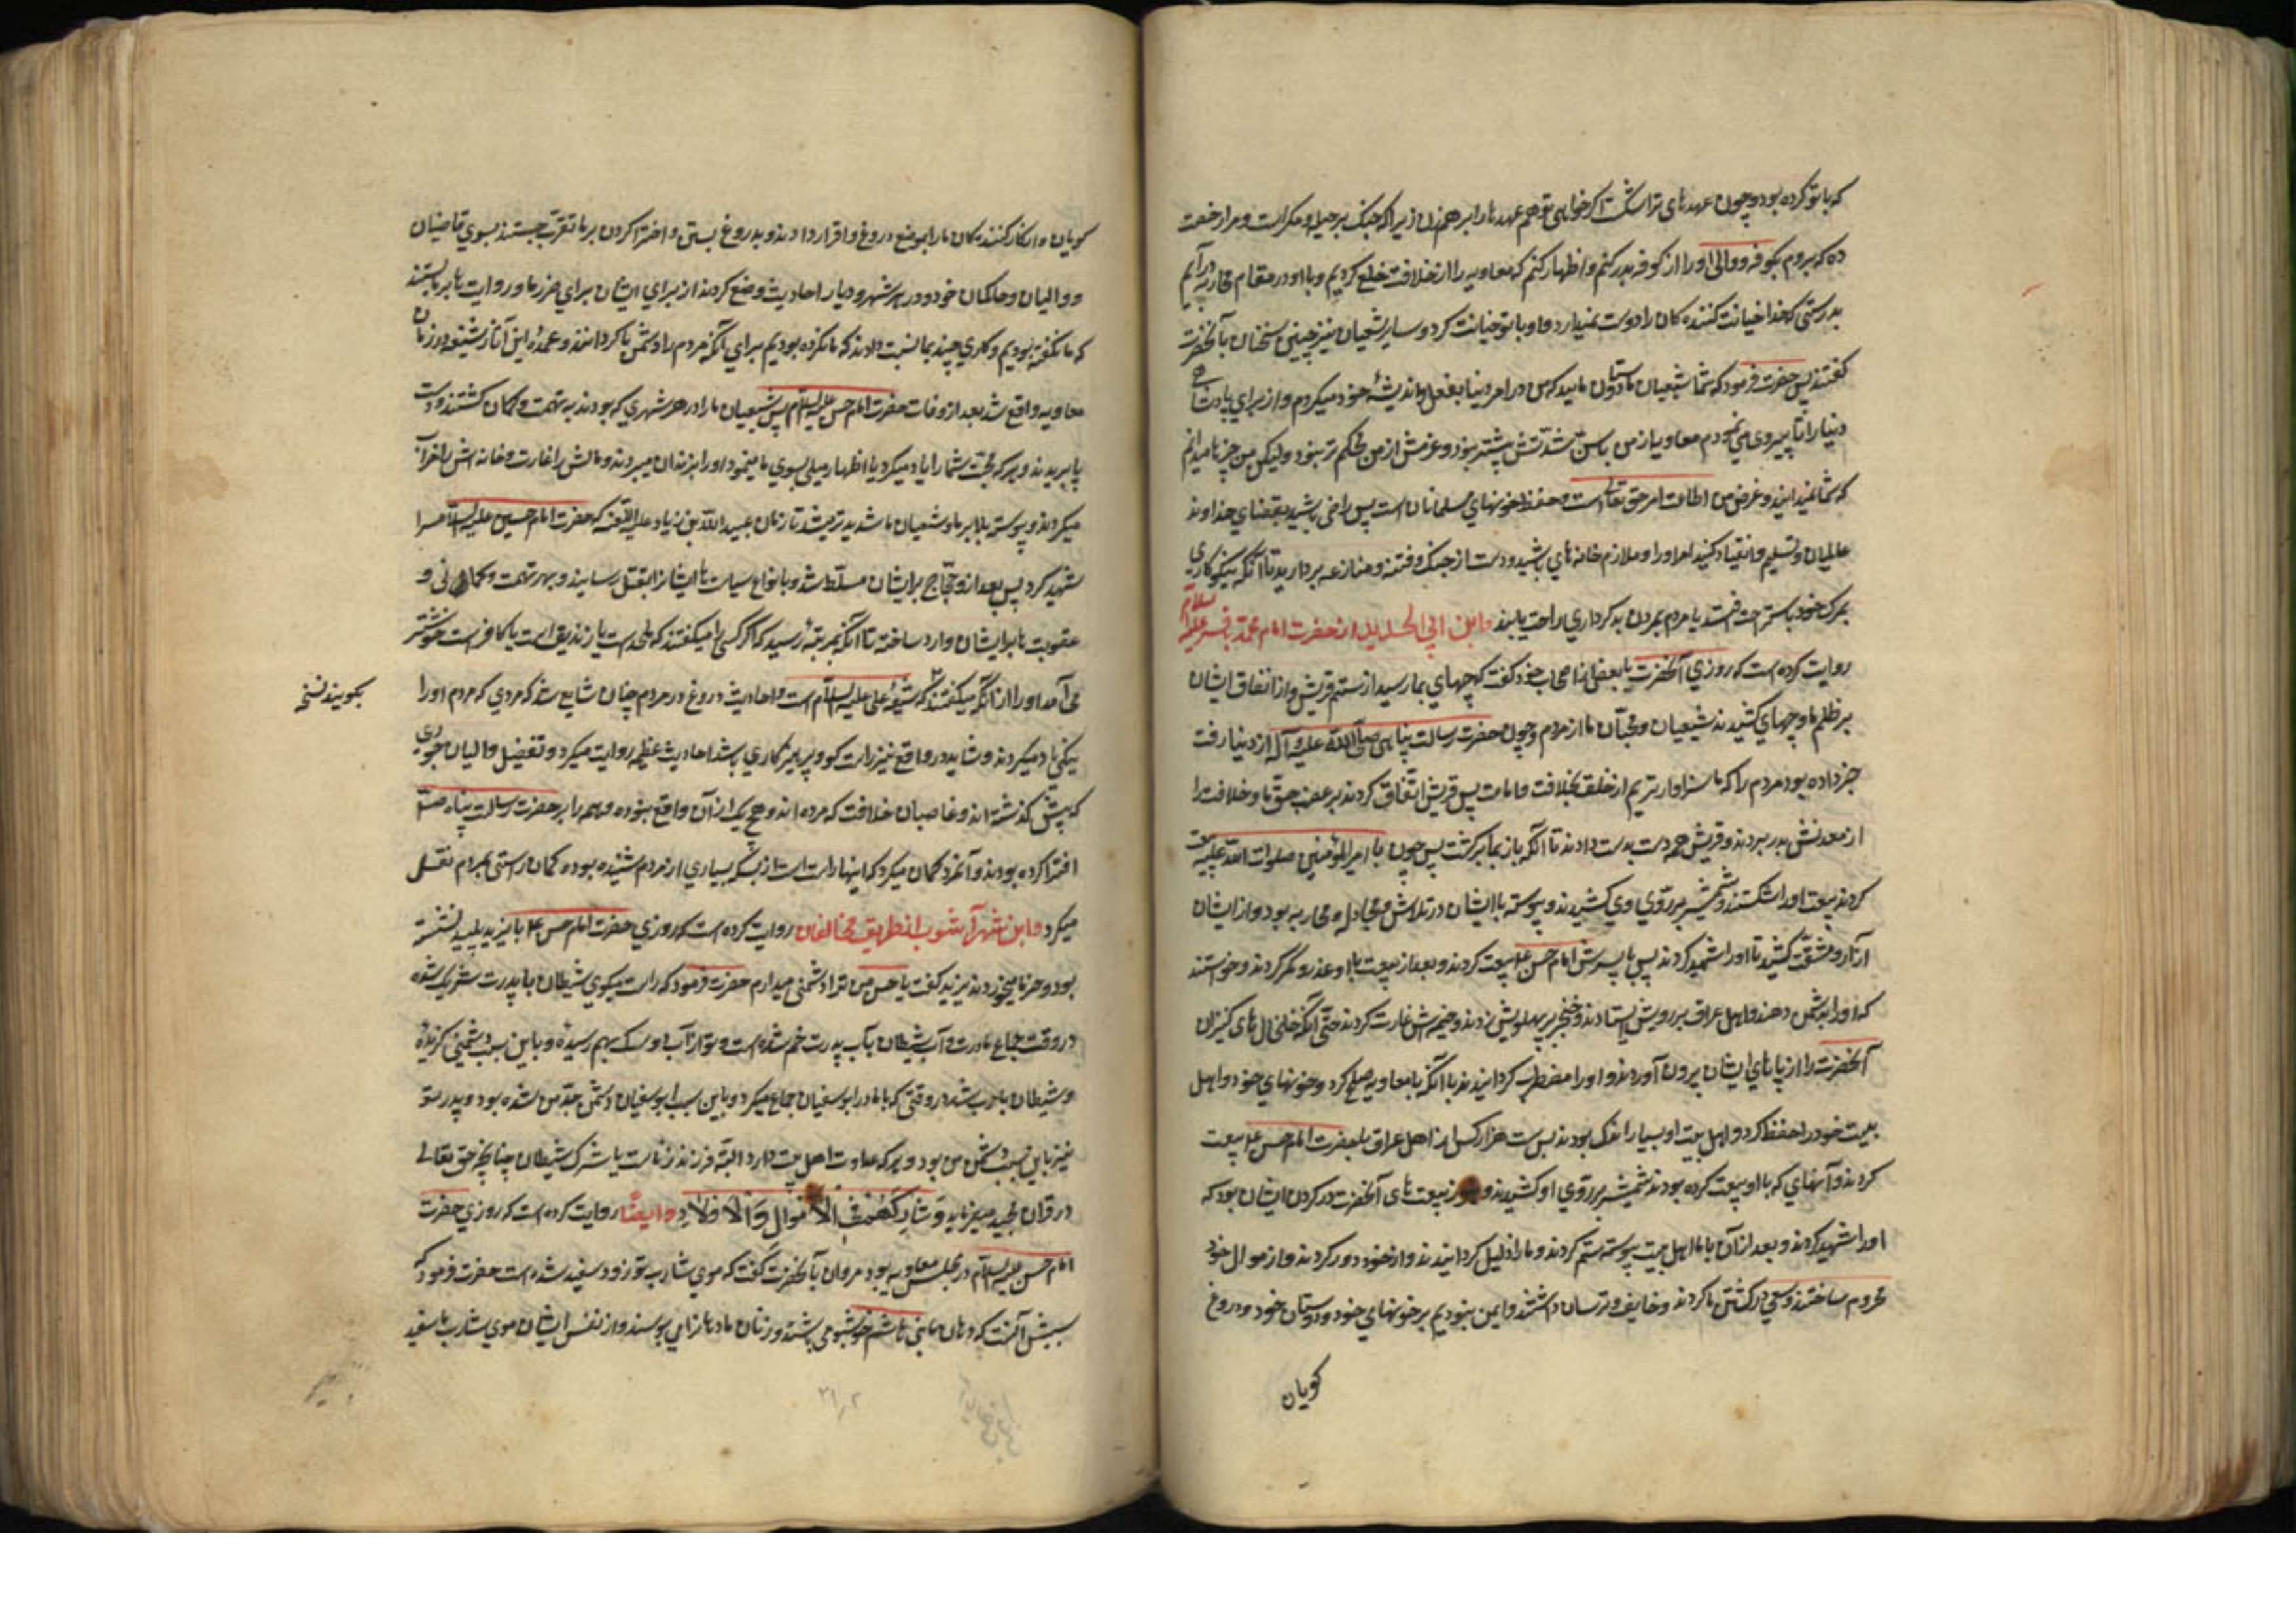 که با تو کرده بود و چون عهدهای ترا شکست اکر خواهی تو هم عهدها را برهم زن زیرا که جنک بر حیله و مکر است و مرا رخصت
ده که بروم بکوفه و والی او را از کوفه بدر کنم و اظهار کنم که معاویه را از خلافت خلع کردیم و با او در مقام محاربه درآیم
بدرستی که خدا خیانت کننده کان را دوست نمیدارد و او با تو خیانت کرد و سایر شیعیان نیز چنین سخنان بآنحضرت
کفتند پس حضرت فرمود که شما شیعیان ما و دوستان مایید که من در امر دنیا بفعل و اندیشهٔ خود میکردم و از برای پادشاهی
دنیا رأیا پیروی می نمودم معاویه از من باسش شدتش بیشتر نبود و عزمش از من محکم تر نبود ولیکن من چیزها میدانم
که شما نمیدانید و غرض من اطاعت امر حق تعالی است و حفظ خونهای مسلمانان است پس راضی باشید بقضای خداوند
عالمیان و تسلیم و انقیاد کنید امر او را و ملازم خانه های باشید و دست از جنک و فتنه و منازعه بردارید تا آنکه نیکو کاری
بمرک خود باستراحت افتد یا مردم بمردن بدکرداری راحت یابند و ابن ابی الحدید از حضرت امام محمد باقر علیه السلام
روایت کرده است که روزی آنحضرت با بعضی از اصحاب خود کفت که چهای بما رسید از ستم قریش و از اتفاق ایشان
بر ظلم ما و چهای کشیدند شیعیان و محبان ما از مردم و چون حضرت رسالت پناهی صلی الله علیه و آله از دنیا رفت
خبر داده بود مردم را که ما سزاوار تریم از خلق بخلافت و امامت پس قریش اتفاق کردند بر غصب حق ما و خلافت را
از معدنش بدر بردند و قریش همه دست بدست دادند تا آنکه باز بما برکشت پس چون با امیر المؤمنین صلوات الله علیه بیعت
کردند بیعت او را شکستند و شمشیر بر روی وی کشیدند و پیوسته با ایشان در تلاش و مجادله و محاربه بود و از ایشان
آزار و مشقت کشید تا او را شهید کردند پس با پسرش امام حسن ع بیعت کردند و بعد از بیعت با او غدر و مکر کردند و خواستند
که او را بدشمن دهند و اهل عراق برویش ایستادند و خنجر بر پهلویش زدند و خیمه اش غارت کردند حتی آنکه خلخال های کنیزان
آنحضرت را از پاهای ایشان بیرون آوردند و او را مضطرب کردانیدند تا آنکه با معاویه صلح کرد و خونهای خود و اهل
بیت خود را حفظ کرد و اهل بیت او بسیار اندک بودند پس بیست هزار کس از اهل عراق با حضرت امام حسین ع بیعت
کردند و آنهای که با او بیعت کرده بودند شمشیر بر روی او کشیدند و هنوز بیعت های آنحضرت در کردن ایشان بود که
او را شهید کردند و بعد از آن با ما اهل بیت پیوسته ستم کردند و ما را ذلیل کردانیدند و از خود دور کردند و از اموال خود
محروم ساختند و سعی در کشتن ما کردند و خایف و ترسان داشتند و ایمن نبودیم بر خونهای خود و دوستان خود و دروغ
کویان
کویان و انکار کننده کان ما را بموضع دروغ و اقرار دادند و بدروغ بستن و افترا کردن بر ما تقرب جستند بسوی قاضیان
و والیان و حاکمان خود و در هر شهر و دیار احادیث وضع کردند از برای ایشان برای ضرر ما و روایت ها بر ما بستند
که ما نکفته بودیم و کاری چند بما نسبت دادند که ما نکرده بودیم برای آنکه مردم را دشمن ما کردانند و عمدهٔ این آثار شنیعه در زمان
معاویه واقع شد بعد از وفات حضرت امام حسن علیه السلام پس شیعیان ما را در هر شهری که بودند به تهمت و کمان کشتند و دست
پا بریدند و هر که بمحبت شما را یاد میکرد یا اظهار میلی بسوی ما مینمود او را بزندان میبردند و مالش را غارت و خانه اش را خراب
میکردند و پیوسته بلا بر ما و شیعیان ما شدید تر میشد تا زمان عبید الله بن زیاد علیه اللعنه که حضرت امام حسین علیه السلام را
شهید کرد پس بعد از و حجاج بر ایشان مسلط شد و بانواع سیاست ها ایشانرا بقتل رسانید و بهر تهمت و کمانی و
عقوبت ها بر ایشان وارد ساخته تا آنکه بمرتبهٔ رسید که اکر کسی را میکفتند که ملحد است یا زندیق است یا کافر است خوشتر
می آمد او را از آنکه میکفتند که شیعهٔ علی علیه السلام است و احادیث دروغ در مردم چنان شایع شد که مردی که مردم او را
بکویند نسخه
بنیکی یاد میکردند و شاید در واقع نیز راست کو و پرهیزکاری باشد احادیث عظیم روایت میکرد و تفضیل والیان جوری
که پیش کذشته اند و غاصبان خلافت که مرده اند و هیچ یک از آن واقع نبوده و همه را بر حضرت رسالت پناه صلی
افترا کرده بودند و آنمرد کمان میکرد که اینها راست است از بسکه بسیاری از مردم شنیده بوده کمان راستی بمردم نقل
میکرد و ابن شهر آشوب از طریق مخالفان روایت کرده است که روزی حضرت امام حسن ع با یزید پلید نشسته
بود و خرما میخوردند یزید کفت یا حسن من ترا دشمن میدارم حضرت فرمود که راست میکوی شیطان با پدرت شریک شده
در وقت جماع مادرت و آب شیطان با آب پدرت ضم شده است و تو از آب او و سک بهم رسیدهٔ و باین سبب دشمنی کزیدهٔ
و شیطان با حرب شد در وقتی که با مادر ابو سفیان جماع میکرد و باین سبب ابو سفیان دشمن جد من شده بود و پدر تو
نیز باین سبب دشمن من بود و هر که عداوت اهل بیت دارد البته فرزند زناست یا شرک شیطان چنانچه حق تعالی
در قران مجید میفرماید وَشَارِکْهُمْ فِی الْأَمْوَالِ وَالْأَوْلَادِ و ایضاً روایت کرده است که روزی حضرت
امام حسن علیه السلام در مجلس معاویه بود مروان بآنحضرت کفت که موی شارب تو زود سفید شده است حضرت فرمود که
سببش آنست که دهان ما بنی هاشم خوشبو می باشد و زنان ما دهان ما را می بوسند و از نفس ایشان موی شارب ما سفید